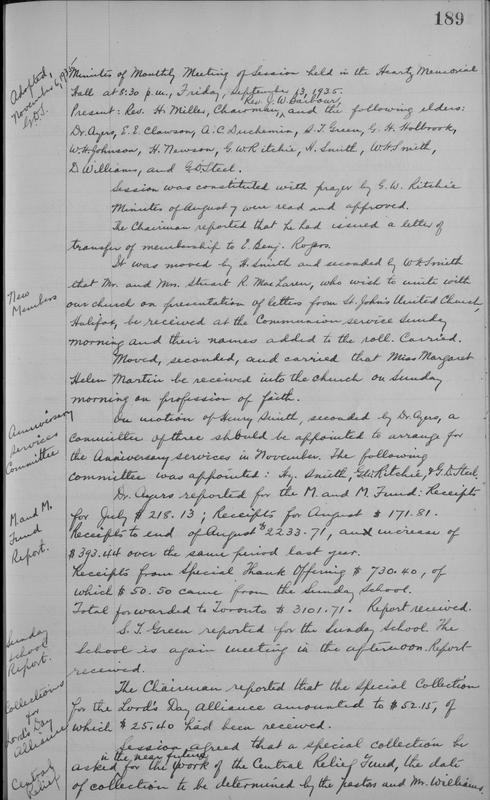 189
Adopted,
November 6, 1935
G.D.S.
Minutes of Monthly Meeting of Session held in the Heartz Memorial
Hall at 8:30 p.m., Friday, September 13, 1935.
Present: Rev. H. Miller, Chairman, Rev. J.W. Barbour, and the following elders:
Dr. Ayers, E.E. Clawson, A.C. Duchemin, S.T. Green, G.H. Holbrook,
W.H. Johnson, H. Newson, G.W. Ritchie, H. Smith, W.H. Smith,
D. Williams, and G.D. Steel.
Session was constituted with prayer by G.W. Ritchie
Minutes of August 7 were read and approved.
The Chairman reported that he had issued a letter of
transfer of membership to E. Benj. Rogers.
New
Members
It was moved by H. Smith and seconded by W.H. Smith
that Mr. and Mrs. Stuart R. MacLaren, who wish to unite with
our church on presentation of letters from St. John's United Church,
Halifax, be received at the Communion service Sunday
morning and their names added to the roll. Carried.
Moved, seconded, and carried that Miss Margaret
Helen Martin be received into the church on Sunday
morning on profession of faith.
Anniversary
Services
Committee
On motion of Henry Smith, seconded by Dr. Ayers, a
committee of three should be appointed to arrange for
the Anniversary services in November. The following
committee was appointed: Hy. Smith, Ritchie, & G.D. Steel.
M and M.
Fund
Report.
Dr. Ayers reported for the M. and M. Fund: Receipts
for July $218.13; Receipts for August $171.81.
Receipts to end of August $2233.71, an increase of
$393.44 over the same period last year.
Receipts from Special Thank Offering $730.40, of
which $50.50 came from the Sunday School.
Total forwarded to Toronto $3101.71. Report received.
Sunday
School
Report.
S.T. Green reported for the Sunday School. The
School is again meeting in the afternoon. Report
received.
Collections
for
Lord's Day
Alliance
The Chairman reported that the special Collection
for the Lord's Day Alliance amounted to $52.15, of
which $25.40 had been received.
Central
Relief
Session agreed that a special collection be
asked in the near future for the work of the Central Relief Fund, the date
of collection to be determined by the pastor and Mr. Williams.